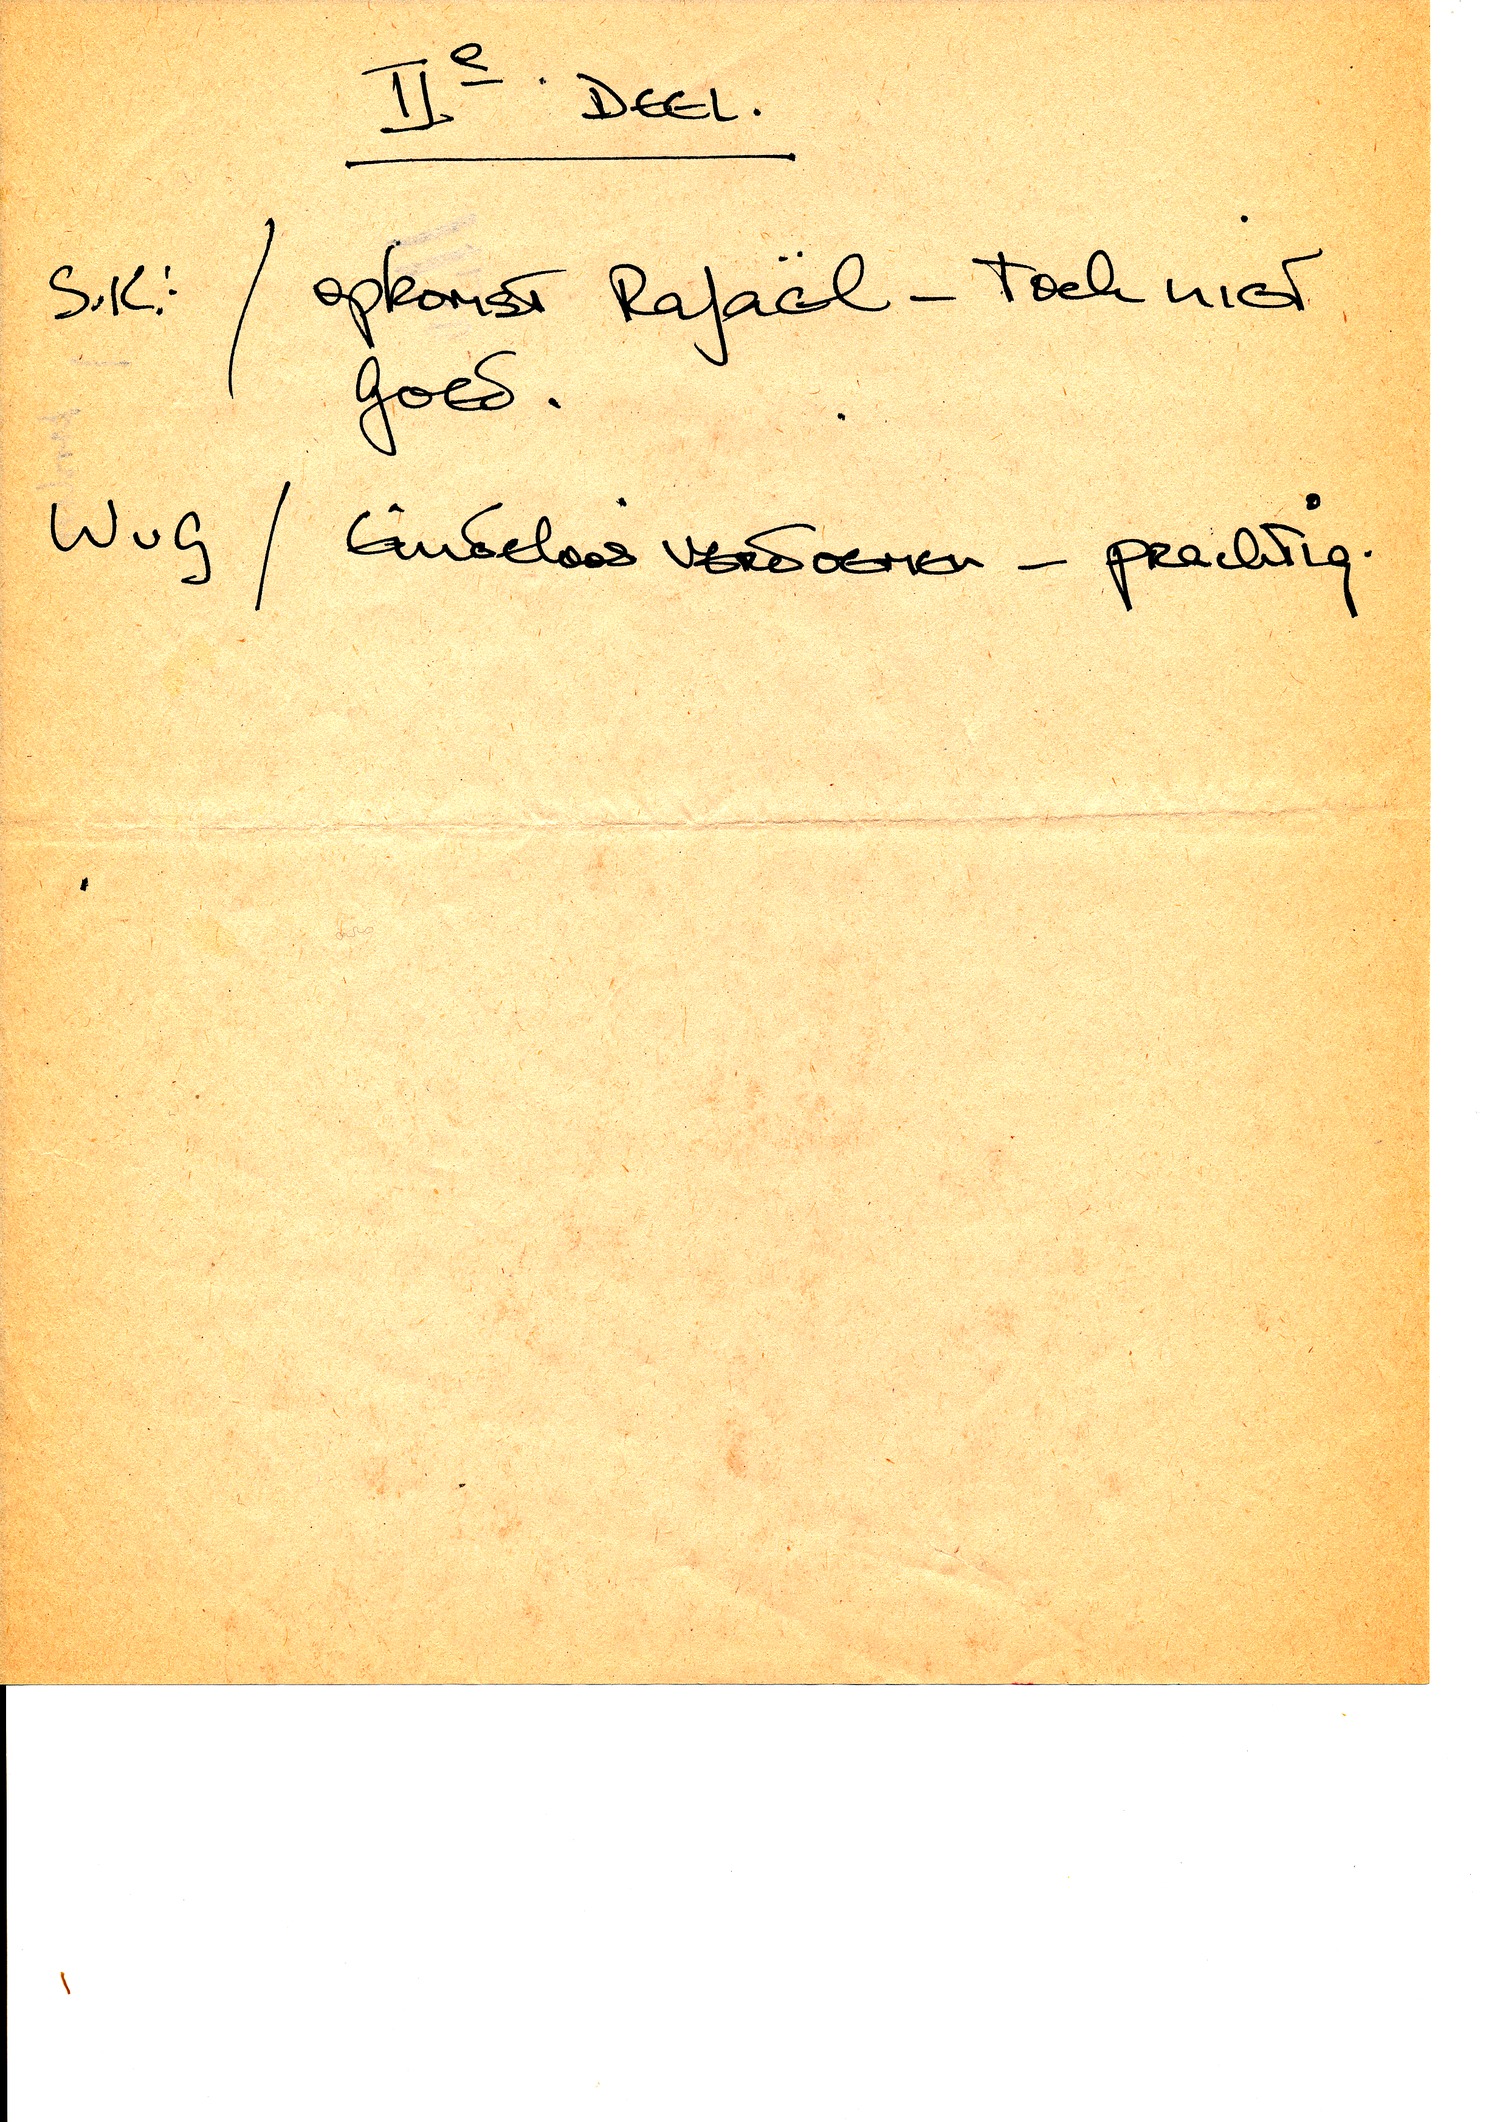 IIe DEEL.
S.K: / opkomst Rafaël - Toch niet
goed.
WvG / Eindeloos verdoemen - prachtig.